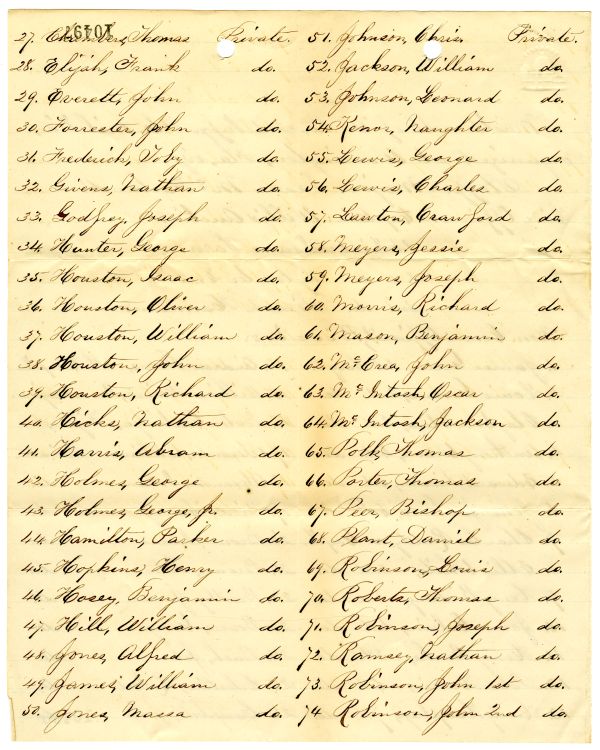 10497
27. Thomas Private.
28. Elijah, Frank do.
29. Everett, John do.
30. Forrester, John do.
31. Frederick, Toby do.
32. Givens, Nathan do.
33. Godfrey, Joseph do.
34. Hunter, George do.
35. Houston, Isaac do.
36. Houston, Oliver do.
37. Houston, William do.
38. Houston, John do.
39. Houston, Richard do.
40. Hicks, Nathan do.
41. Harris, Abram do.
42. Holmes, George do.
43. Holmes, George, Jr. do.
44. Hamilton, Parker do.
45. Hopkins, Henry do.
46. Hosey, Benjamin do.
47. Hill, William do.
48. Jones, Alfred do.
49. James, William do.
50. Jones, Massa do.
51. Johnson, Chris. Private.
52. Jackson, William do.
53. Johnson, Leonard do.
54. Naughter do.
55. Lewis, George do.
56. Lewis, Charles do.
57. Lawton, Crawford do.
58. Meyers, Jessie do.
59. Meyers, Joseph do.
60. Morris, Richard do.
61. Mason, Benjamin do.
62. McCrea, John do.
63. McIntosh, Oscar do.
64. McIntosh, Jackson do.
65. Polk, Thomas do.
66. Porter, Thomas do.
67. Peer, Bishop do.
68. Plant, Daniel do.
69. Robinson, Louis do.
70. Roberts, Thomas do.
71. Robinson, Joseph do.
72. Ramsey, Nathan do.
73. Robinson, John 1st do.
74 Robinson, John 2nd do.